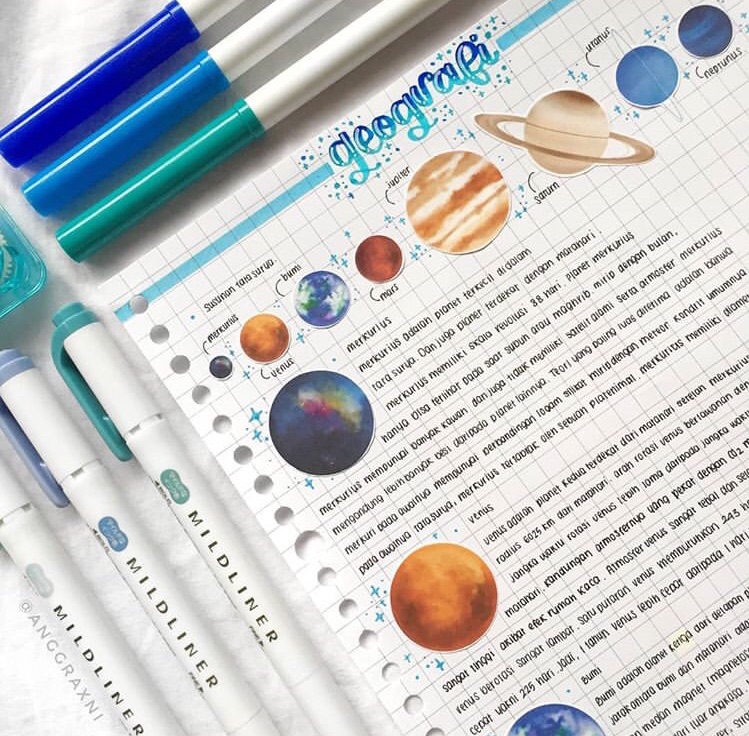 geografi
uranus
neptunus
jupiter
saturn
mars
Susunan tata surya.
bumi
merkurius
venus
merkurius
merkurius adalah planet terkecil didalam
tata surya. Dan juga planet terdekat dengan matahari.
merkurius memiliki skala revolusi 88 hari. planet merkurius
hanya bisa terlihat pada saat subuh atau maghrib mirip dengan bulan,
merkurius mempunyai banyak kawah dan juga tidak memiliki satelit alami serta atmosfer merkurius
mengandung lebih banyak besi daripada planet lainnya. Teori yang paling luas diterima adalah bahwa
merkuri pada awalnya mempunyai perbandingan logam silikat mirip dengan meteor kondrit umumnya
pada awalnya tata surya, merkurius tertabrak oleh sebuah planetimal. merkurius memiliki
venus
venus adalah planet kedua terdekat dari matahari setelah merkurius
radius 6025 km dari matahari. arah rotasi venus berlawanan
jangka waktu rotasi venus lebih lama daripada jangka waktu
matahari. kandungan atmosfernya yang pekat dengan
sangat tinggi akibat efek rumah kaca. Atmosfer venus sangat tebal dan
venus berotasi sangat lambat. satu putaran venus membutuhkan 243
cepat yakni 225 hari. jadi, 1 tahun venus lebih cepat daripada 1 hari
Bumi
Bumi adalah planet ketiga dari delapan
jarak antara bumi dan matahari
medan magnet (magnetos
MILDLINER
MILDLINER
MILDLINER
@ANGGRAXNI